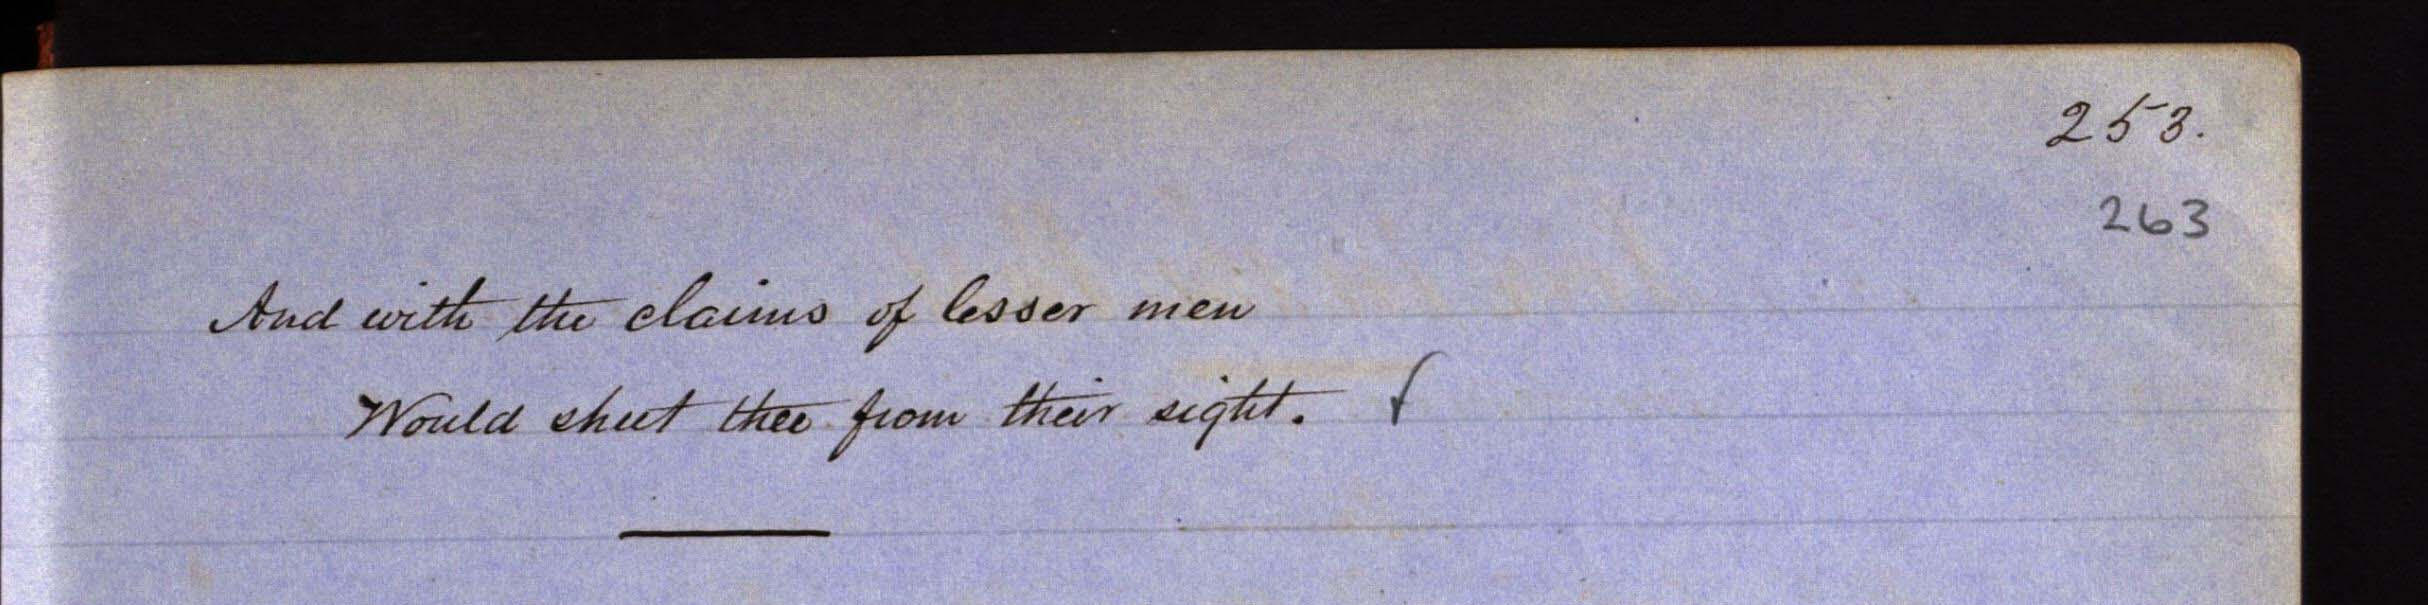 253.
263
And with the claims of lesser men
Would shut thee from their sight.